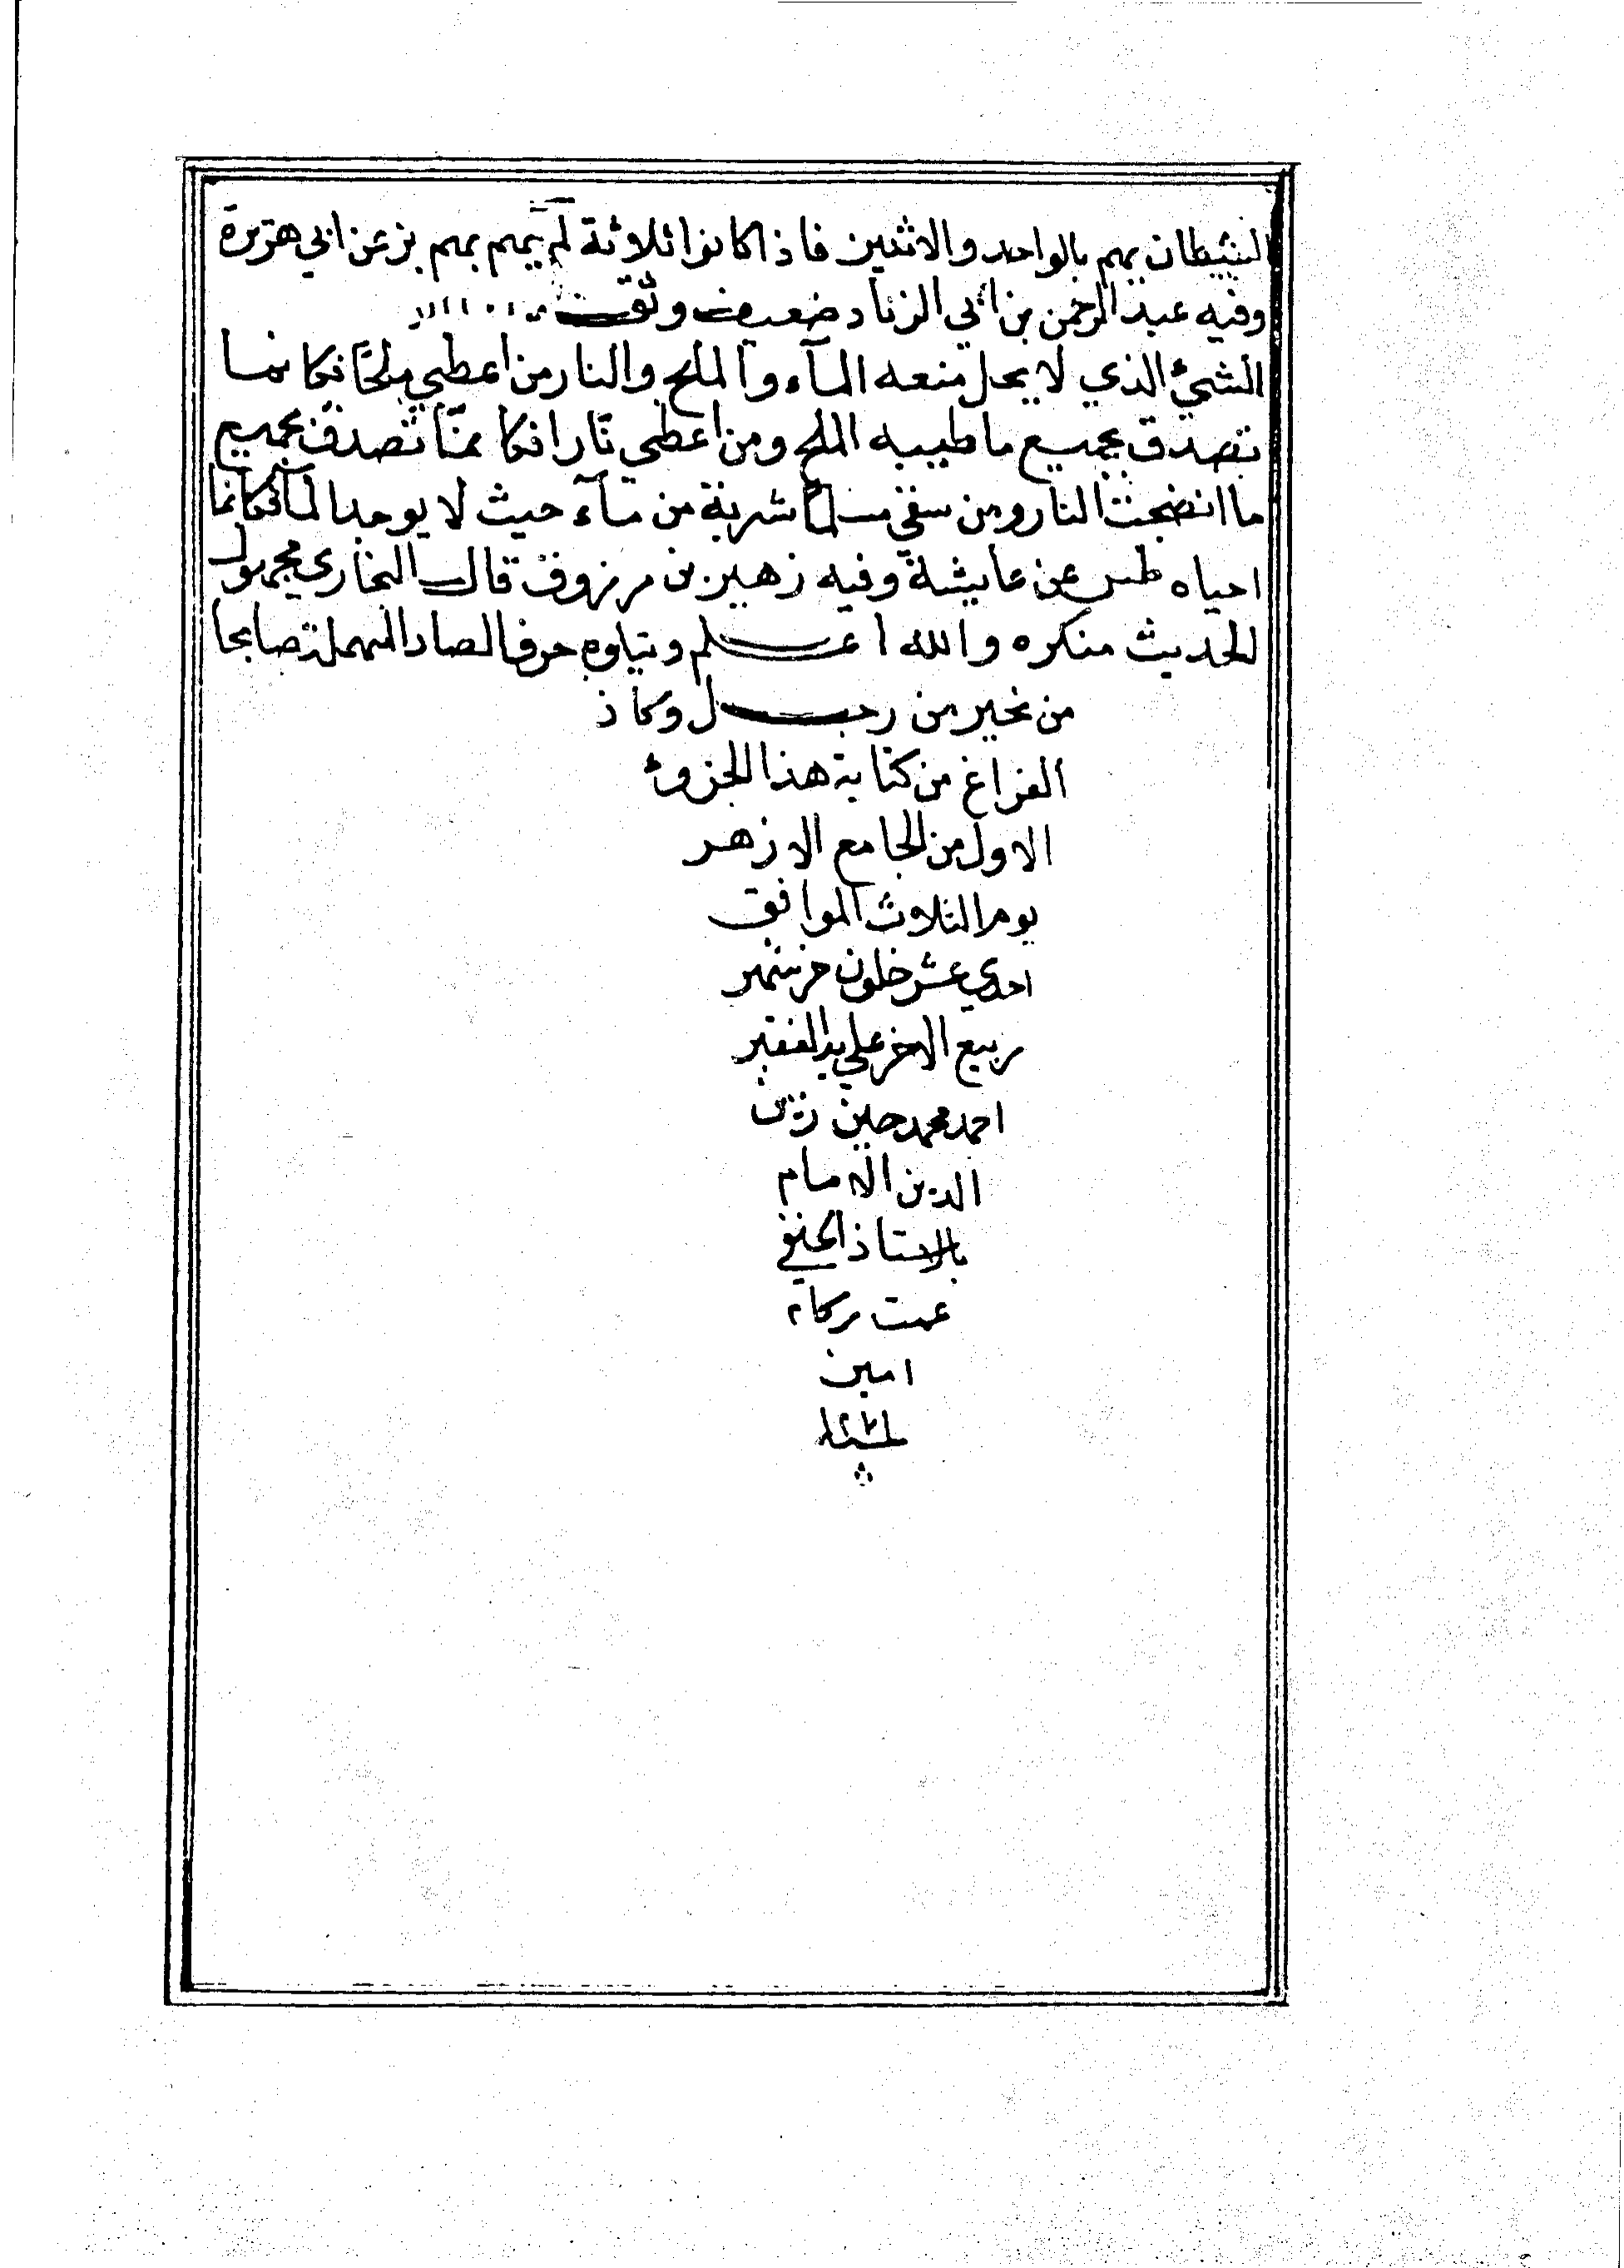 الشيطان يهم بالواحد والاثنين فاذا كانوا ثلاثة لم يهم بهم بز عن ابي هريرة
وفيه عبد الرحمن بن ابي الزناد ضعيف وثق
الشيئ الذي لا يحل منعه المآء والملح والنار من اعطي ملحًا فكانما
تصدق بجميع ما طيبه الملح ومن اعطي نارا فكانمّا تصدق بجميع
ما انضجت النار ومن سقي مسلما شربة من مآء حيث لا يوجد المآ فكانما
احياه طس عن عايشة وفيه زهير بن مرزوق قال البخاري مجهول
الحديث منكره والله اعلم ويتلوه حرف الصاد المهملة
من خير من رجل وكان
الفراغ من كتابة هذا الجزوء
الاول من الجامع الازهر
يوم الثلاوث الموافق
احدي عشر خلون من شهر
ربيع الاخر علي يد الفقير
احمد محمد حسين زين
الدين الامام
بالاستاذ الحنفي
عمت بركاته
امين